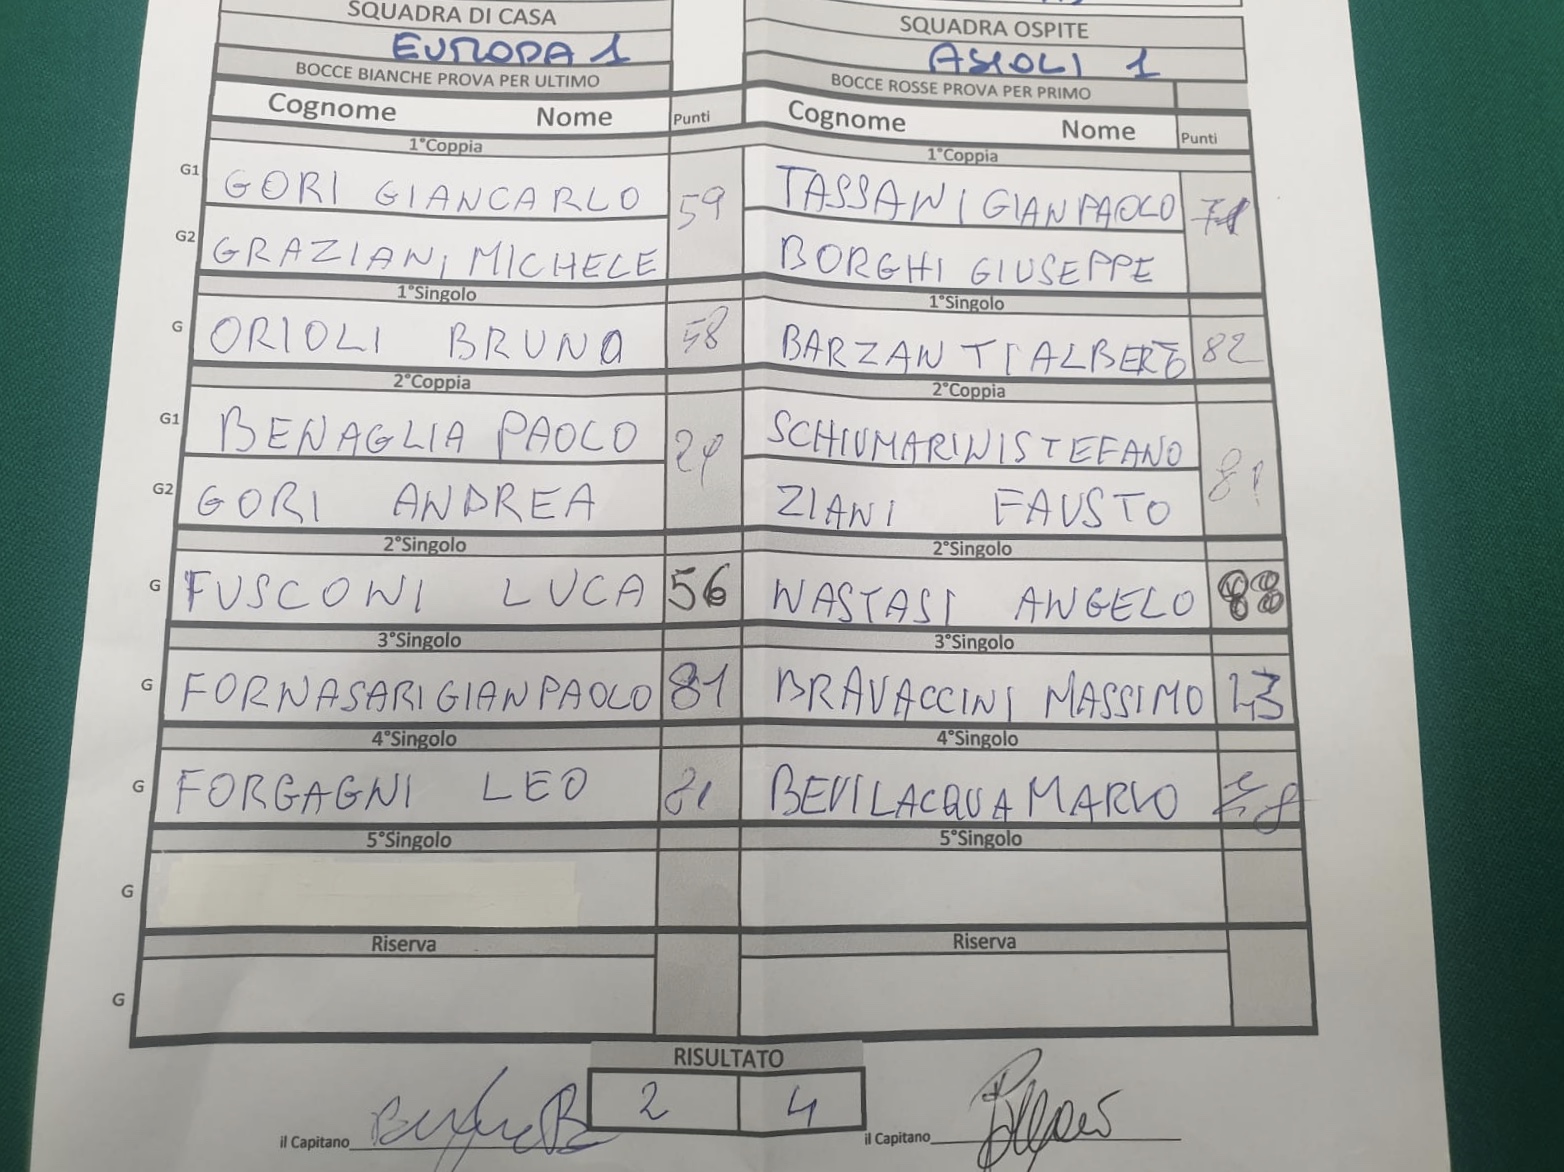 SQUADRA DI CASA SQUADRA OSPITE
EUROPA 1 ASIOLI 1
BOCCE BIANCHE PROVA PER ULTIMO BOCCE ROSSE PROVA PER PRIMO
Cognome Nome Punti Cognome Nome Punti
1°Coppia 1°Coppia
G1 GORI GIANCARLO 59 TASSANI GIANPAOLO 71
G2 GRAZIANI MICHELE BORGHI GIUSEPPE
1°Singolo 1°Singolo
G ORIOLI BRUNO 58 BARZANTI ALBERTO 82
2°Coppia 2°Coppia
G1 BENAGLIA PAOLO SCHIUMARINI STEFANO 81
G2 GORI ANDREA ZIANI FAUSTO
2°Singolo 2°Singolo
G FUSCONI LUCA 56 NASTASI ANGELO 88
3°Singolo 3°Singolo
G FORNASARI GIANPAOLO 81 BRAVACCINI MASSIMO
4°Singolo 4°Singolo
G FORGAGNI LEO 81 BEVILACQUA MARIO
5°Singolo 5°Singolo
G
Riserva Riserva
G
RISULTATO
2 4
il Capitano il Capitano